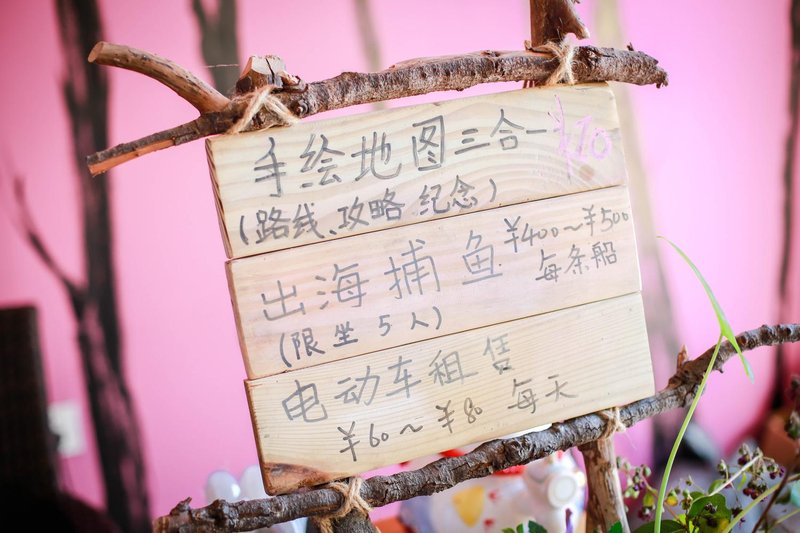 手绘地图三合一 ¥10
(路线、攻略 纪念)
出海捕鱼 ¥400~¥500
(限坐5人) 每条船
电动车租赁
¥60~¥80 每天